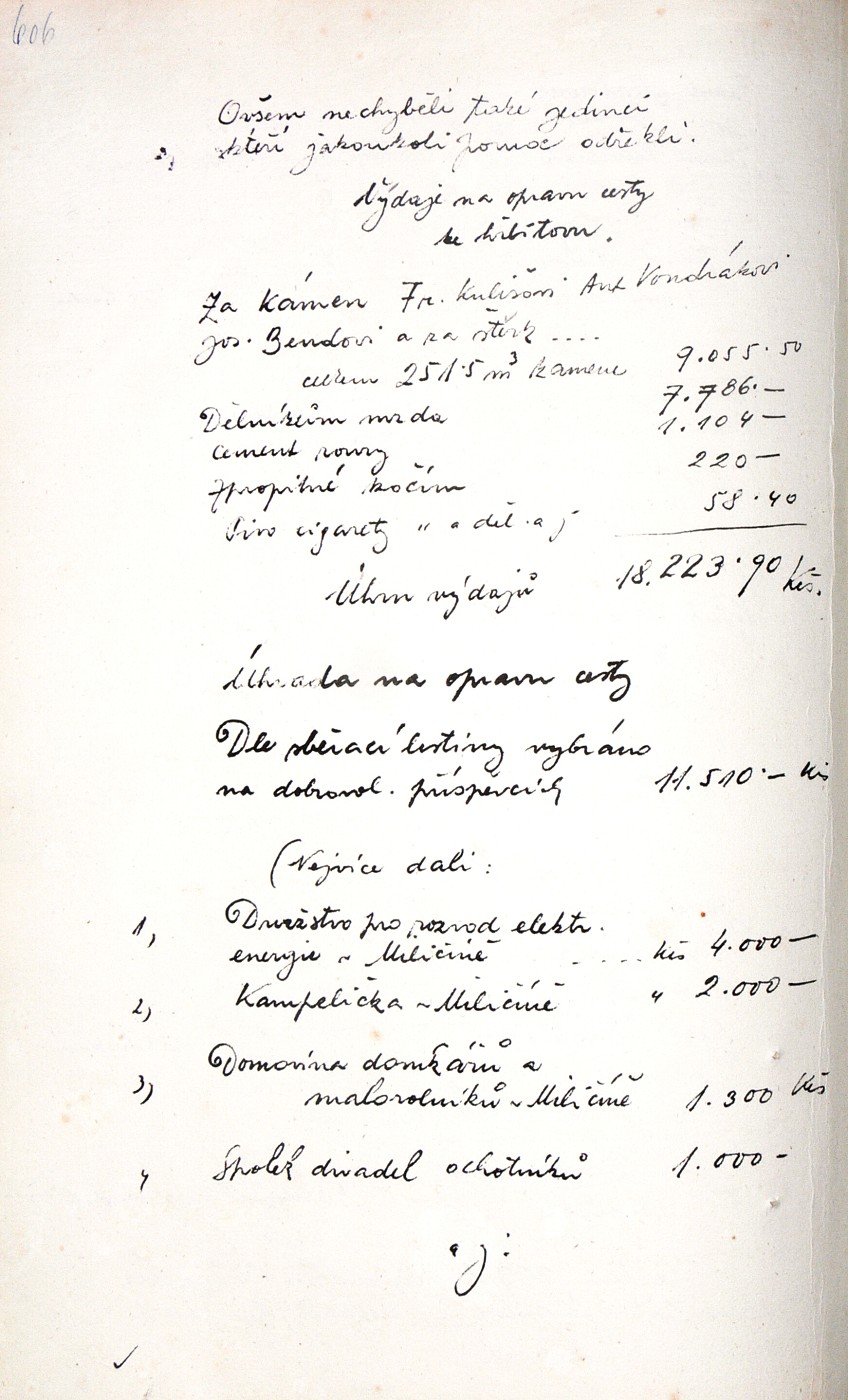 606
Ovšem nechyběli také jedinci
kteří jakoukoli pomoc odřekli.
Výdaje na opravu cesty
ke hřbitovu.
Za kámen Fr. Kulišovi Ant Vondrákovi
Jos. Bendovi a za štěrk ....
celkem 251·5 m³ kamene 9.055·50
Dělníkům mzda 7.786·—
cement roury 1.104—
Zpropitné kočím 220—
Pivo cigarety „ a děl. a j 58·40
Úhrn výdajů 18.223·90 Kčs.
Úhrada na opravu cesty
Dle sběrací listiny vybráno
na dobrovol. příspěvcích 11.510·— Kčs
(Nejvíce dali:
1, Družstvo pro rozvod elektr.
energie v Miličíně .... Kčs 4.000—
2, Kampelička v Miličíně „ 2.000—
3, Domovina domkářů a
malorolníků v Miličíně 1.300 Kčs
Spolek divadel ochotníků 1.000-
a j: